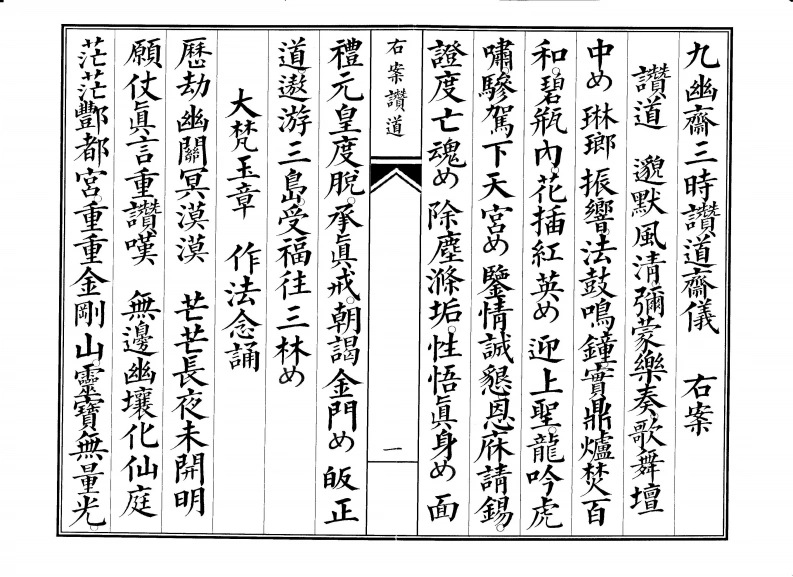 九幽齋三時讚道齋儀　右案
讚道　邈默風清彌蒙樂奏歌舞壇
中め琳瑯振響。法鼓鳴鐘寶鼎爐焚百
和。碧瓶內。花插紅英め迎上聖。龍吟虎
嘯驂駕下天宮め鑒情誠懇恩庥請錫。
證度亡魂め除塵滌垢。性悟眞身め面
右案讚道
一
禮元皇度脫。承眞戒。朝謁金門め皈正
道遨游三島。受福往三林め
大梵玉章　作法念誦
歷劫幽關冥漠漠　芒芒長夜未開明
願仗眞言重讚嘆　無邊幽壤化仙庭
茫茫酆都宮。重重金剛山靈寶無量光。